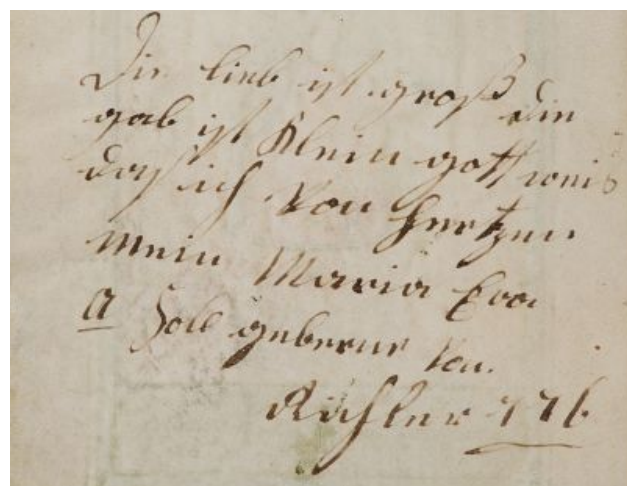 Die lieb ist groß die
gab ist Klein gott weis
das ich Von Hertzen
mein Maria Eva
a geberne Von
Richler 176